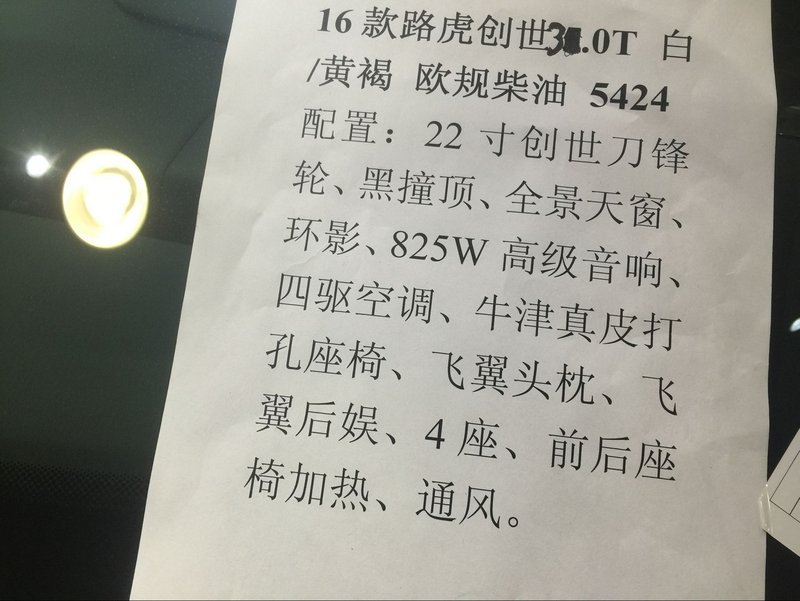 16 款路虎创世3.0T 白
/黄褐 欧规柴油 5424
配置：22 寸创世刀锋
轮、黑撞顶、全景天窗、
环影、825W 高级音响、
四驱空调、牛津真皮打
孔座椅、飞翼头枕、飞
翼后娱、4 座、前后座
椅加热、通风。